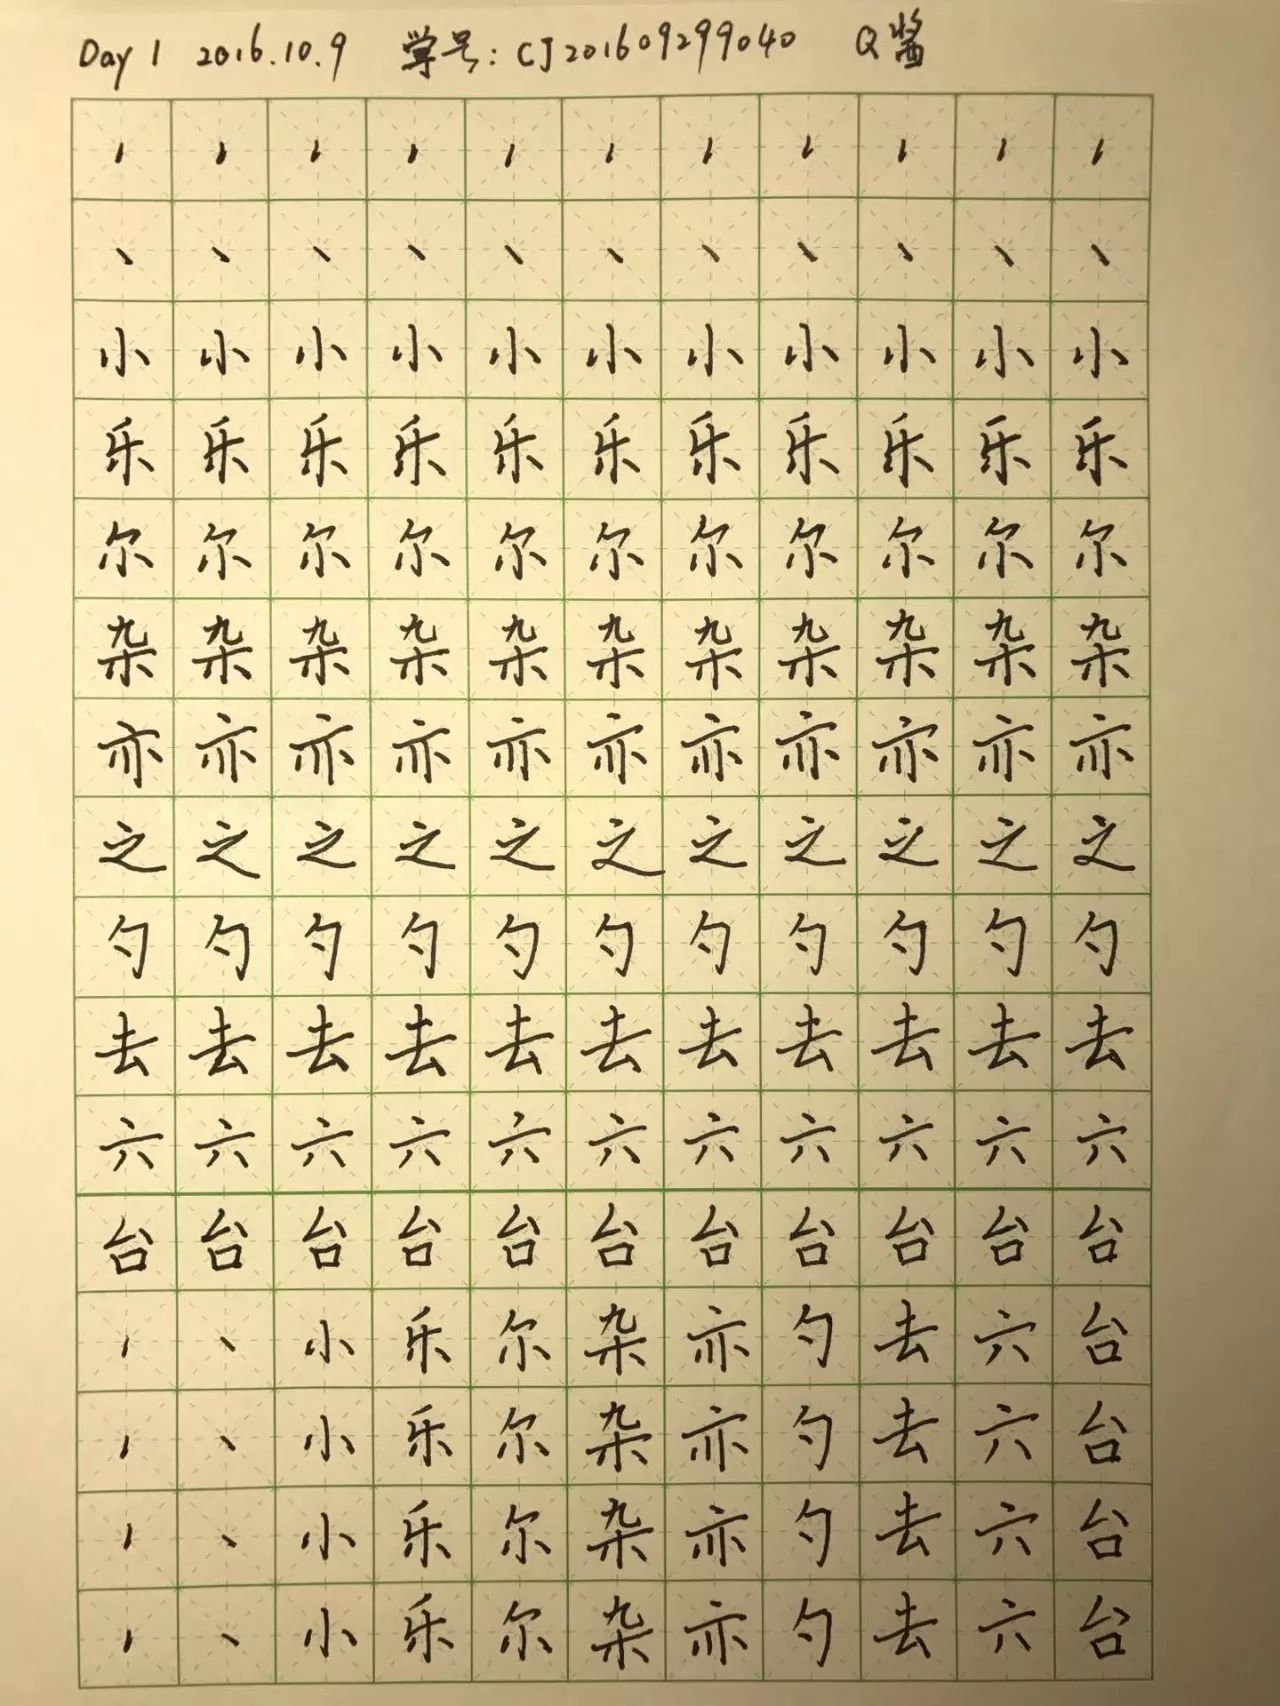 Day 1 2016.10.9 学号: CJ201609299040 Q酱
丶 丶 丶 丶 丶 丶 丶 丶 丶 丶 丶
丶 丶 丶 丶 丶 丶 丶 丶 丶 丶 丶
小 小 小 小 小 小 小 小 小 小 小
乐 乐 乐 乐 乐 乐 乐 乐 乐 乐 乐
尔 尔 尔 尔 尔 尔 尔 尔 尔 尔 尔
杂 杂 杂 杂 杂 杂 杂 杂 杂 杂 杂
亦 亦 亦 亦 亦 亦 亦 亦 亦 亦 亦
之 之 之 之 之 之 之 之 之 之 之
勺 勺 勺 勺 勺 勺 勺 勺 勺 勺 勺
去 去 去 去 去 去 去 去 去 去 去
六 六 六 六 六 六 六 六 六 六 六
台 台 台 台 台 台 台 台 台 台 台
丶 丶 小 乐 尔 杂 亦 勺 去 六 台
丶 丶 小 乐 尔 杂 亦 勺 去 六 台
丶 丶 小 乐 尔 杂 亦 勺 去 六 台
丶 丶 小 乐 尔 杂 亦 勺 去 六 台